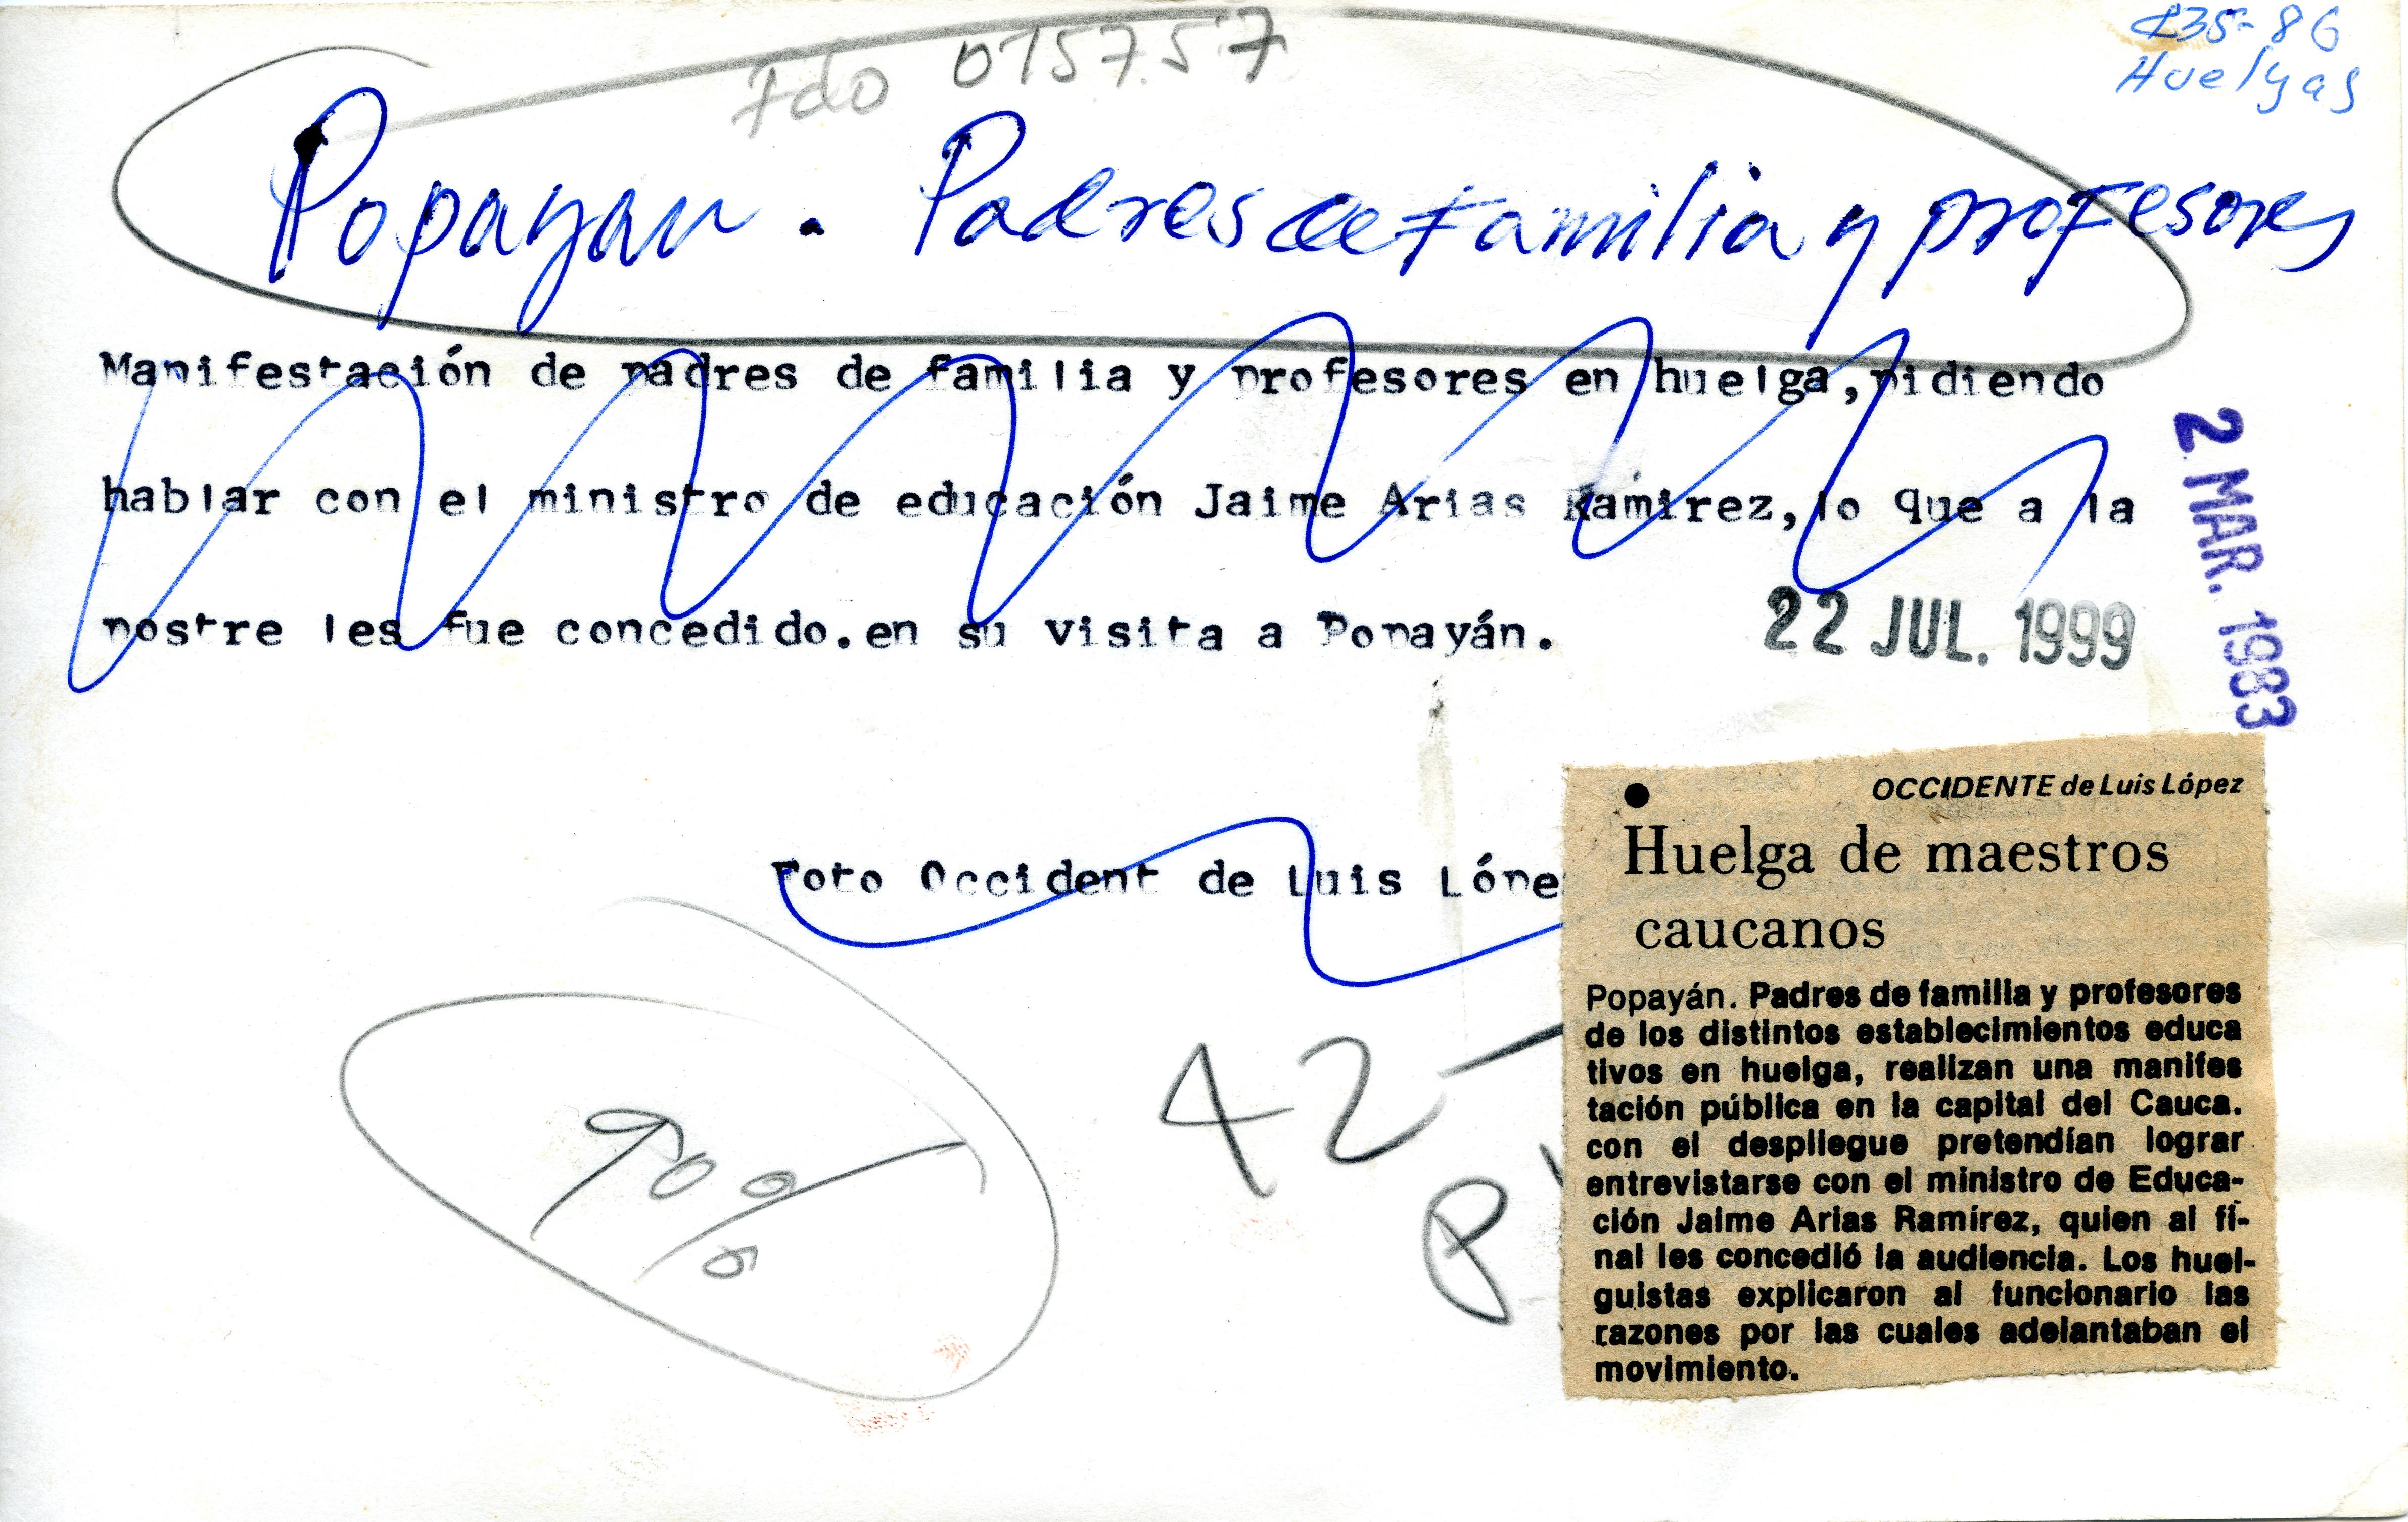 C35-86
Huelgas
7do 015757
Popayan. Padres de familia y profesores
Manifestación de padres de familia y profesores en huelga,pidiendo
hablar con el ministro de educación Jaime Arias Ramirez,lo que a la
postre les fue concedido.en su visita a Popayán.
22 JUL. 1999
2 MAR. 1983
Foto Occident de Luis Lópe
42
P
OCCIDENTE de Luis López
Huelga de maestros
caucanos
Popayán. Padres de familia y profesores
de los distintos establecimientos educa
tivos en huelga, realizan una manifes
tación pública en la capital del Cauca.
con el despliegue pretendían lograr
entrevistarse con el ministro de Educa-
ción Jaime Arias Ramírez, quien al fi-
nal les concedió la audiencia. Los huel-
guistas explicaron al funcionario las
razones por las cuales adelantaban el
movimiento.